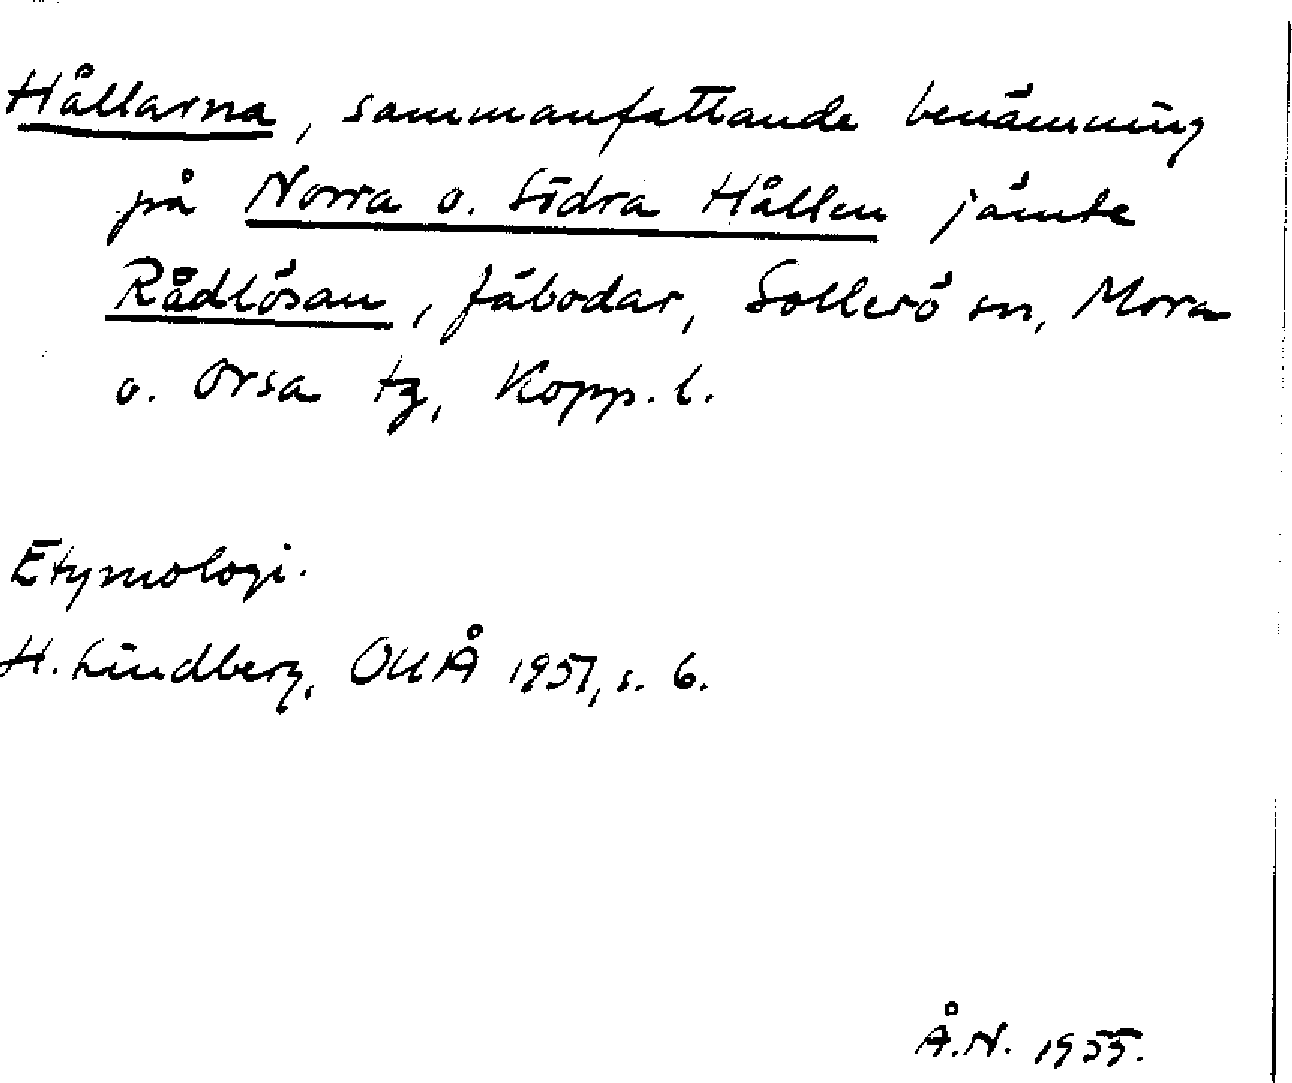 Hållarna, sammanfattande benämning
på Norra o. Södra Hållen jämte
Rådlösan, fäbodar, Sollerö sn, Mora
o. Orsa tg, Kopp. l.
Etymologi.
H. Lindberg, OUÅ 1951, s. 6.
Å.N. 1955.